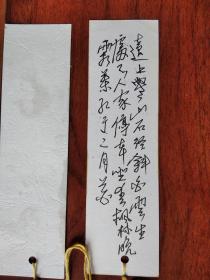 遠上寒山石径斜白雲生
處有人家停車坐愛枫林晚
霜葉紅于二月花